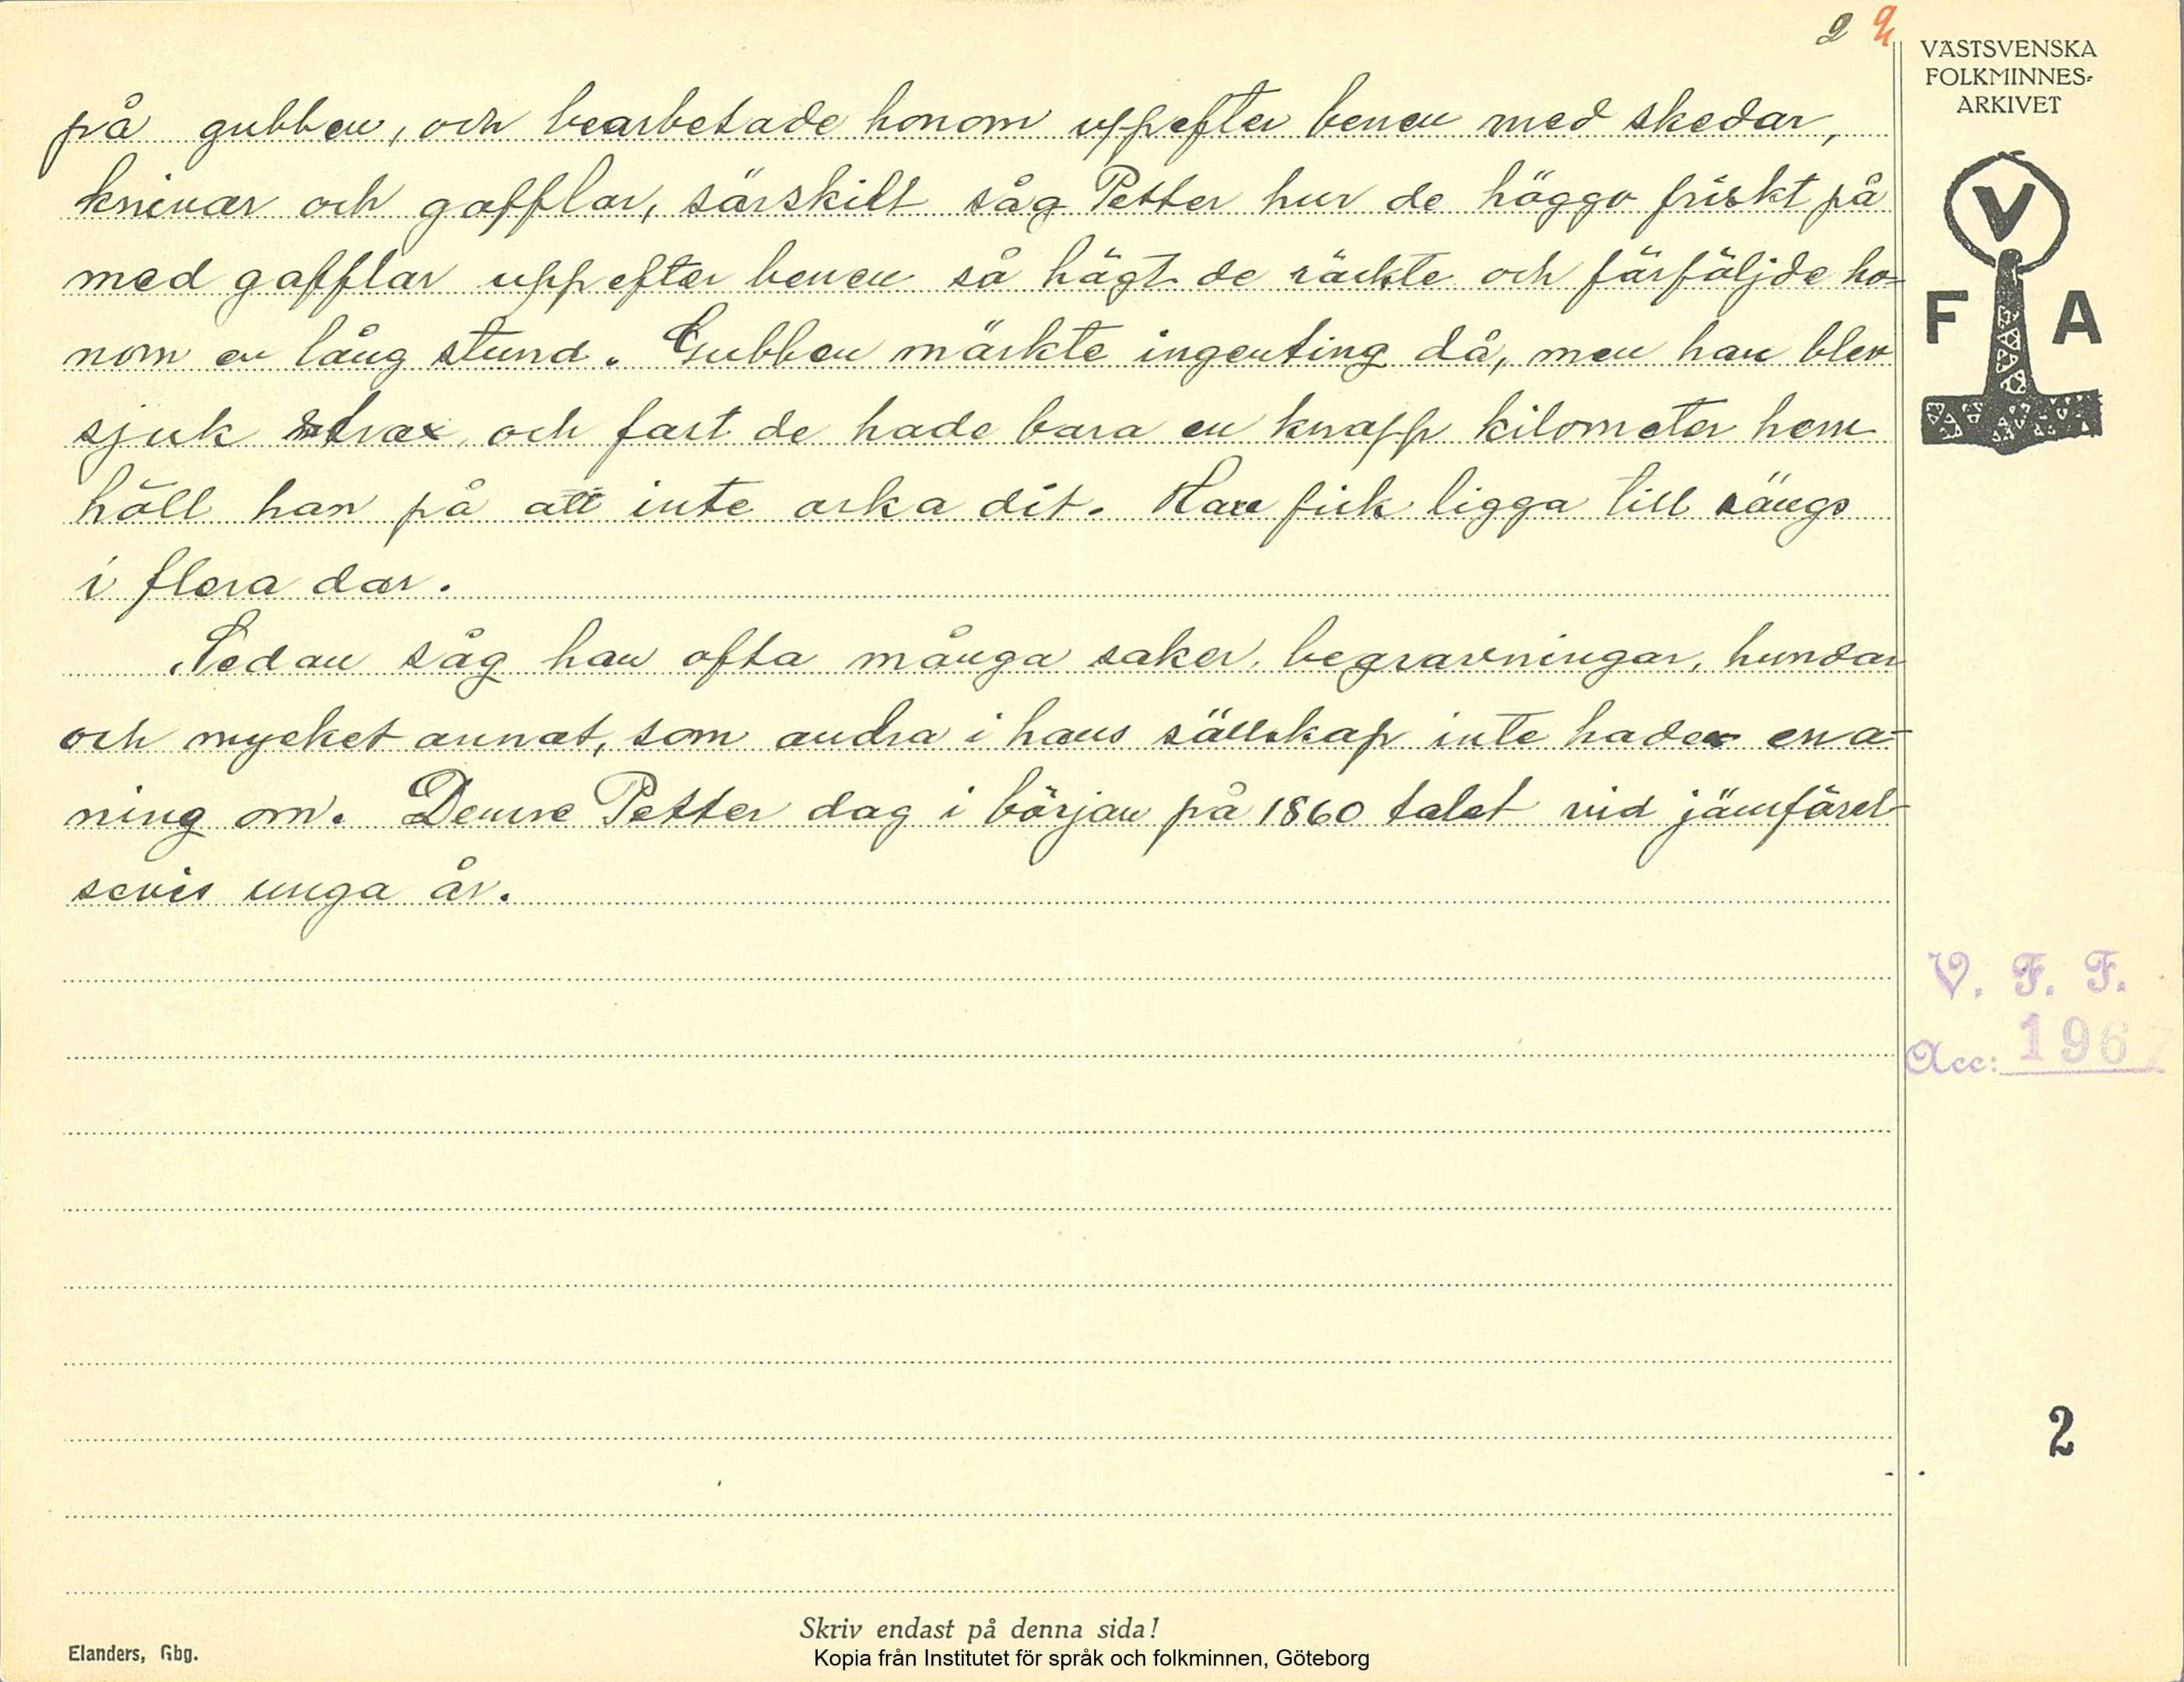 2 2
VÄSTSVENSKA
FOLKMINNES-
ARKIVET
V
F A
på gubben, och bearbetade honom uppefter benen med skedar,
knivar och gafflar, särskilt såg Petter hur de höggo friskt på
med gafflar uppefter benen så högt de räckte och förföljde ho-
nom en lång stund. Gubben märkte ingenting då, men han blev
sjuk strax och fast de hade bara en knapp kilometer hem
höll han på att inte orka dit. Han fick ligga till sängs
i flera dar.
Sedan såg han ofta många saker, begravningar, hundar
och mycket annat, som andra i hans sällskap inte hade en a-
ning om. Denne Petter dog i början på 1860 talet vid jämförel-
sevis unga år.
V. F. F.
Acc: 1967
2
Skriv endast på denna sida!
Elanders, Gbg.
Kopia från Institutet för språk och folkminnen, Göteborg